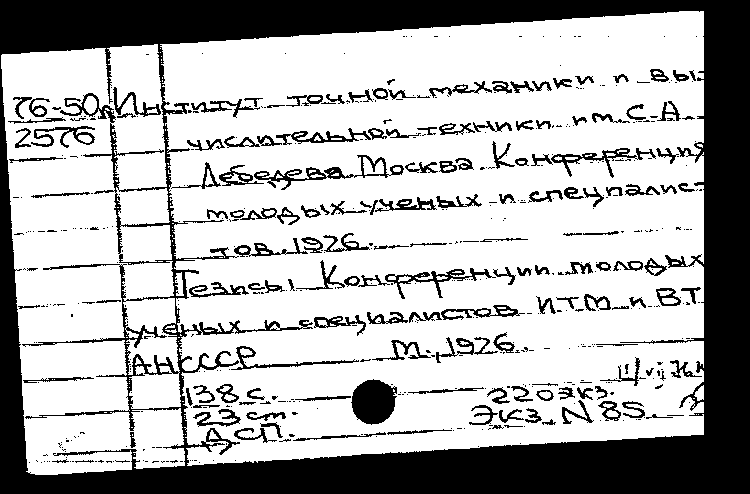 76-50л Институт точной механики и вы-
2576 числительной техники им. С.А.
Лебедева Москва. Конференция
молодых ученых и специалис-
тов. 1976.
Тезисы Конференции молодых
ученых и специалистов ИТМ и ВТ
АН СССР М., 1976.
138 с. 220 экз.
23 см. Экз. N 85.
ДСП.